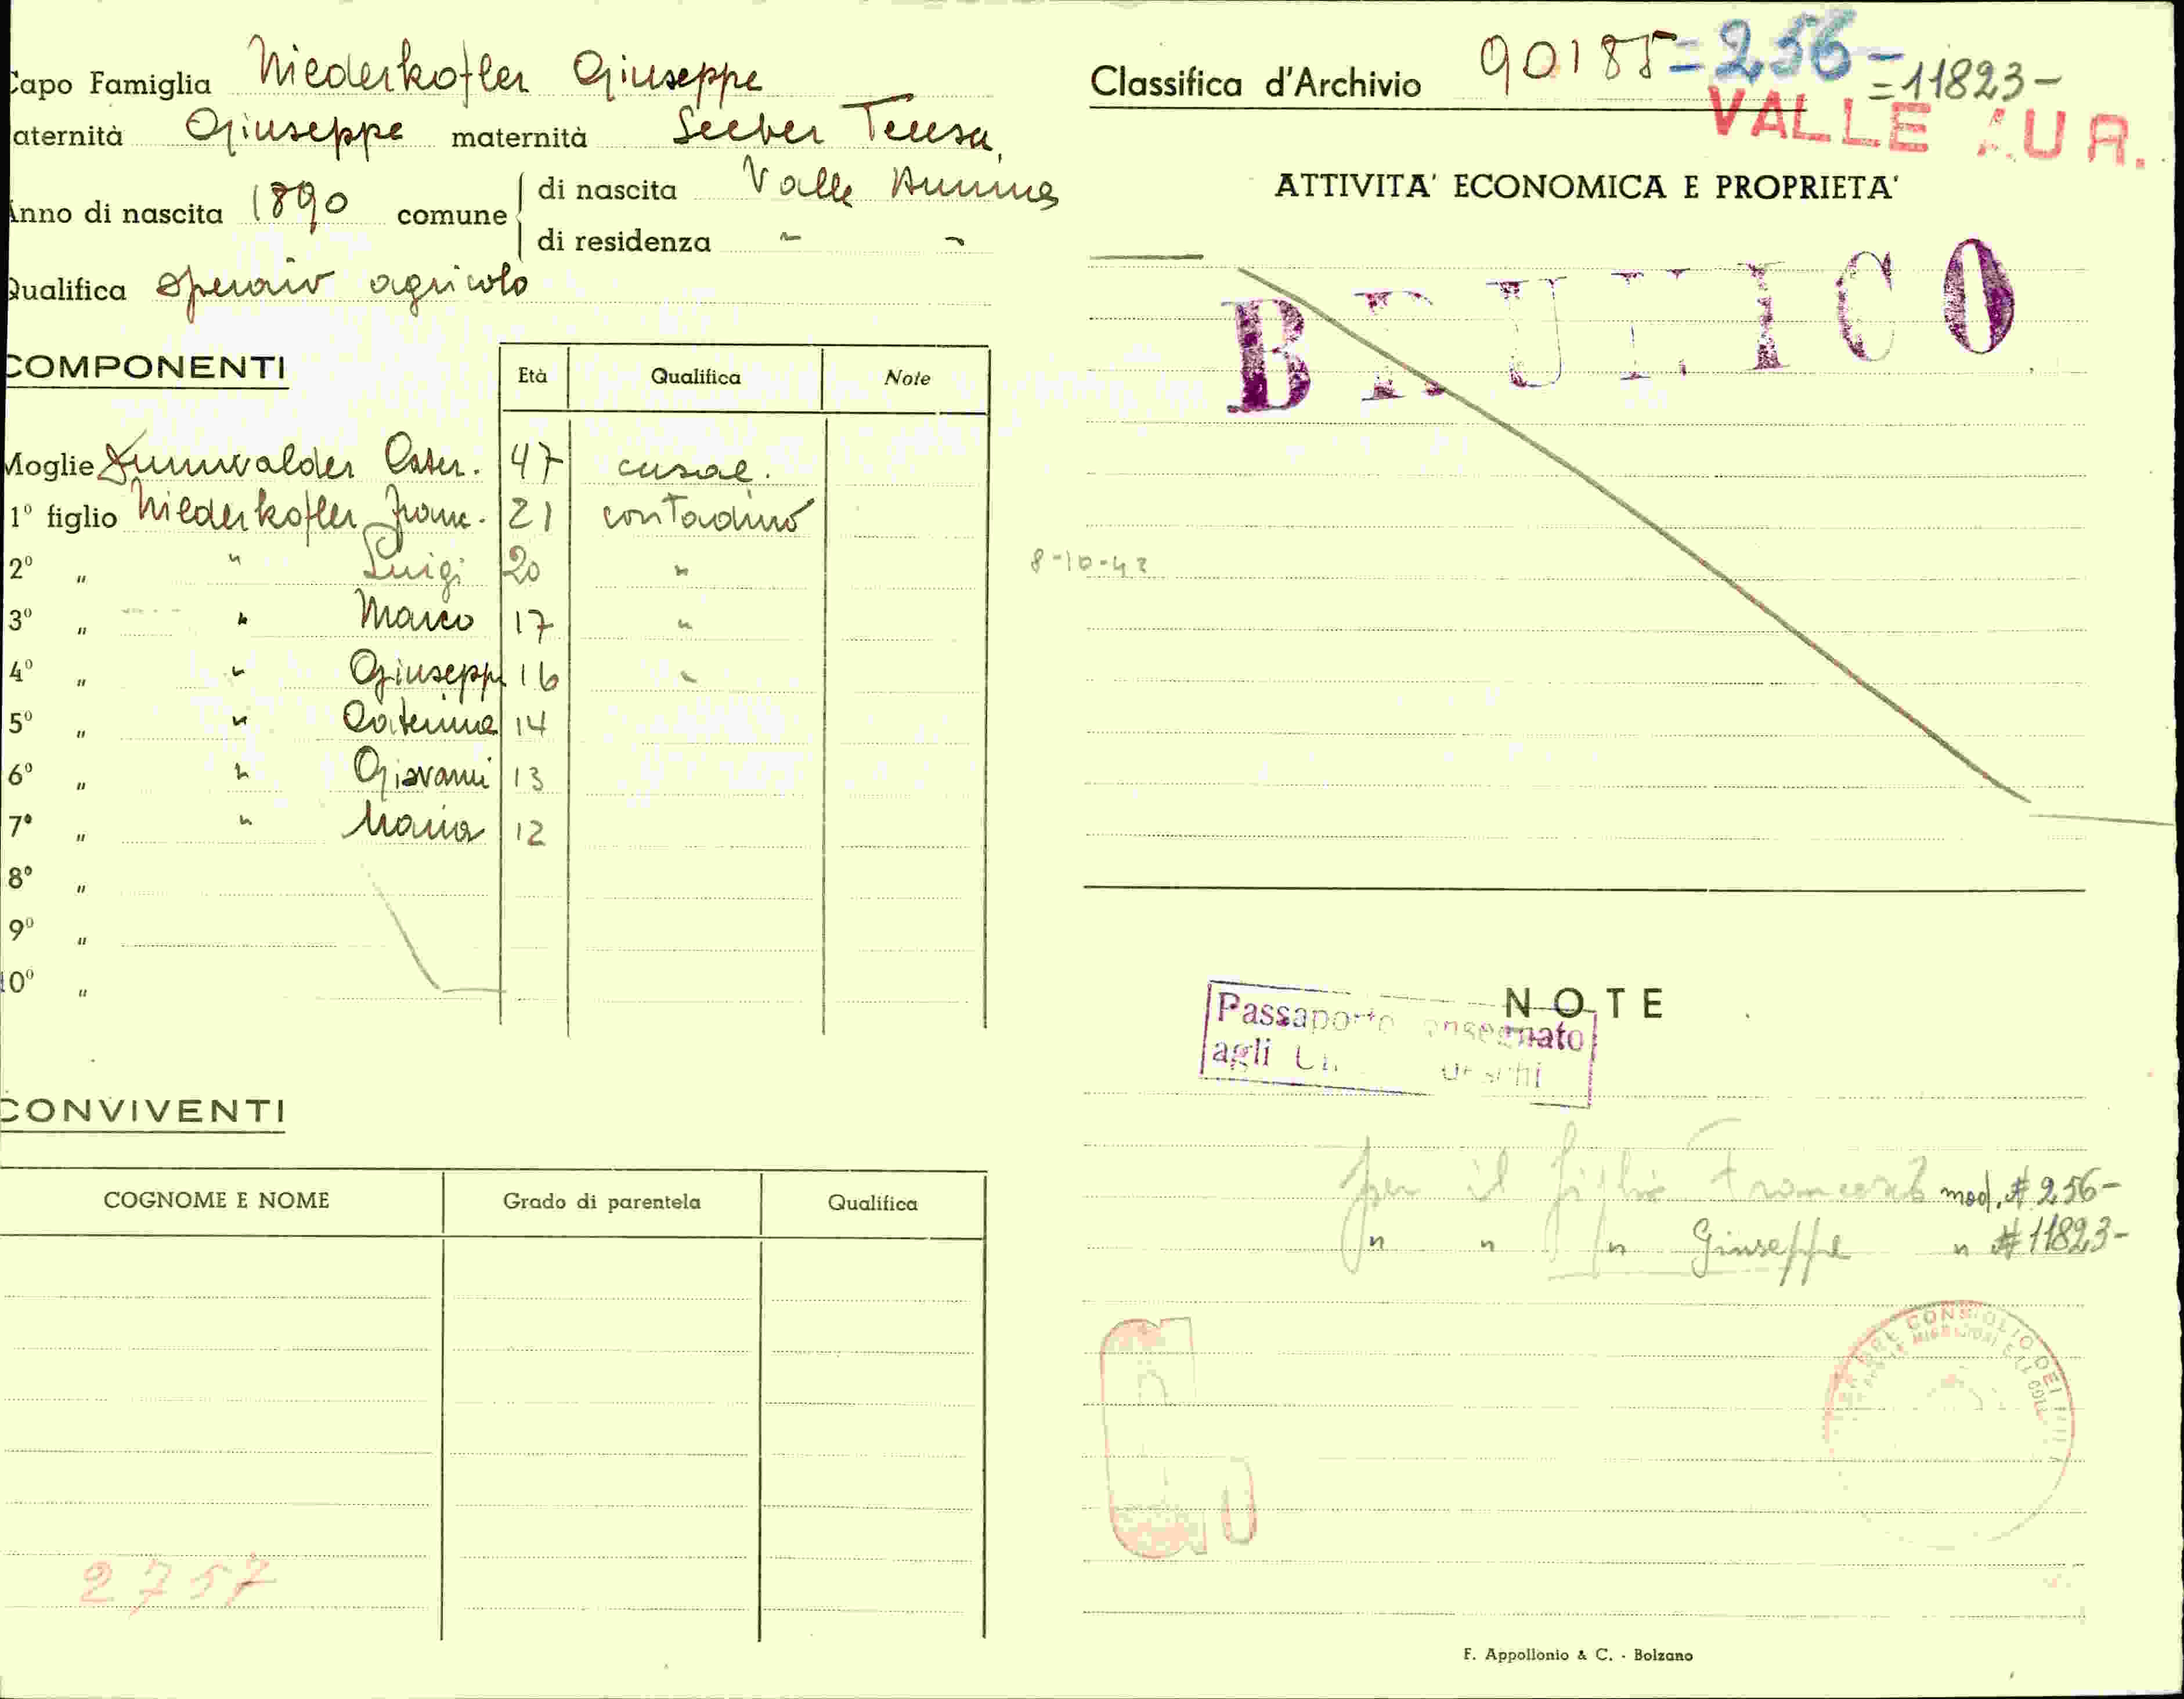 Capo Famiglia Niederkofler Giuseppe
aternità Giuseppe maternità Seeber Teresa
Anno di nascita 1890 comune di nascita Valle Aurina
di residenza " "
Qualifica operaio agricolo
COMPONENTI
Età Qualifica Note
Moglie Ester. 47 casal.
1° figlio Niederkofler Franc. 21 contadino
2° " " Luigi 20 "
3° " " Marco 17 "
4° " " Giuseppe 16 "
5° " " Caterina 14
6° " " Giovanni 13
7° " " Maria 12
8° "
9° "
10° "
CONVIVENTI
COGNOME E NOME Grado di parentela Qualifica
2757
Classifica d'Archivio 90185 = 256 - = 11823 -
VALLE AUR.
ATTIVITA' ECONOMICA E PROPRIETA'
BRUNICO
8-10-42
NOTE
Passaporto consegnato
agli
per il figlio Francesco mod. # 256 -
" " " Giuseppe " # 11823 -
CONSIGLIO DEI
F. Appollonio & C. - Bolzano